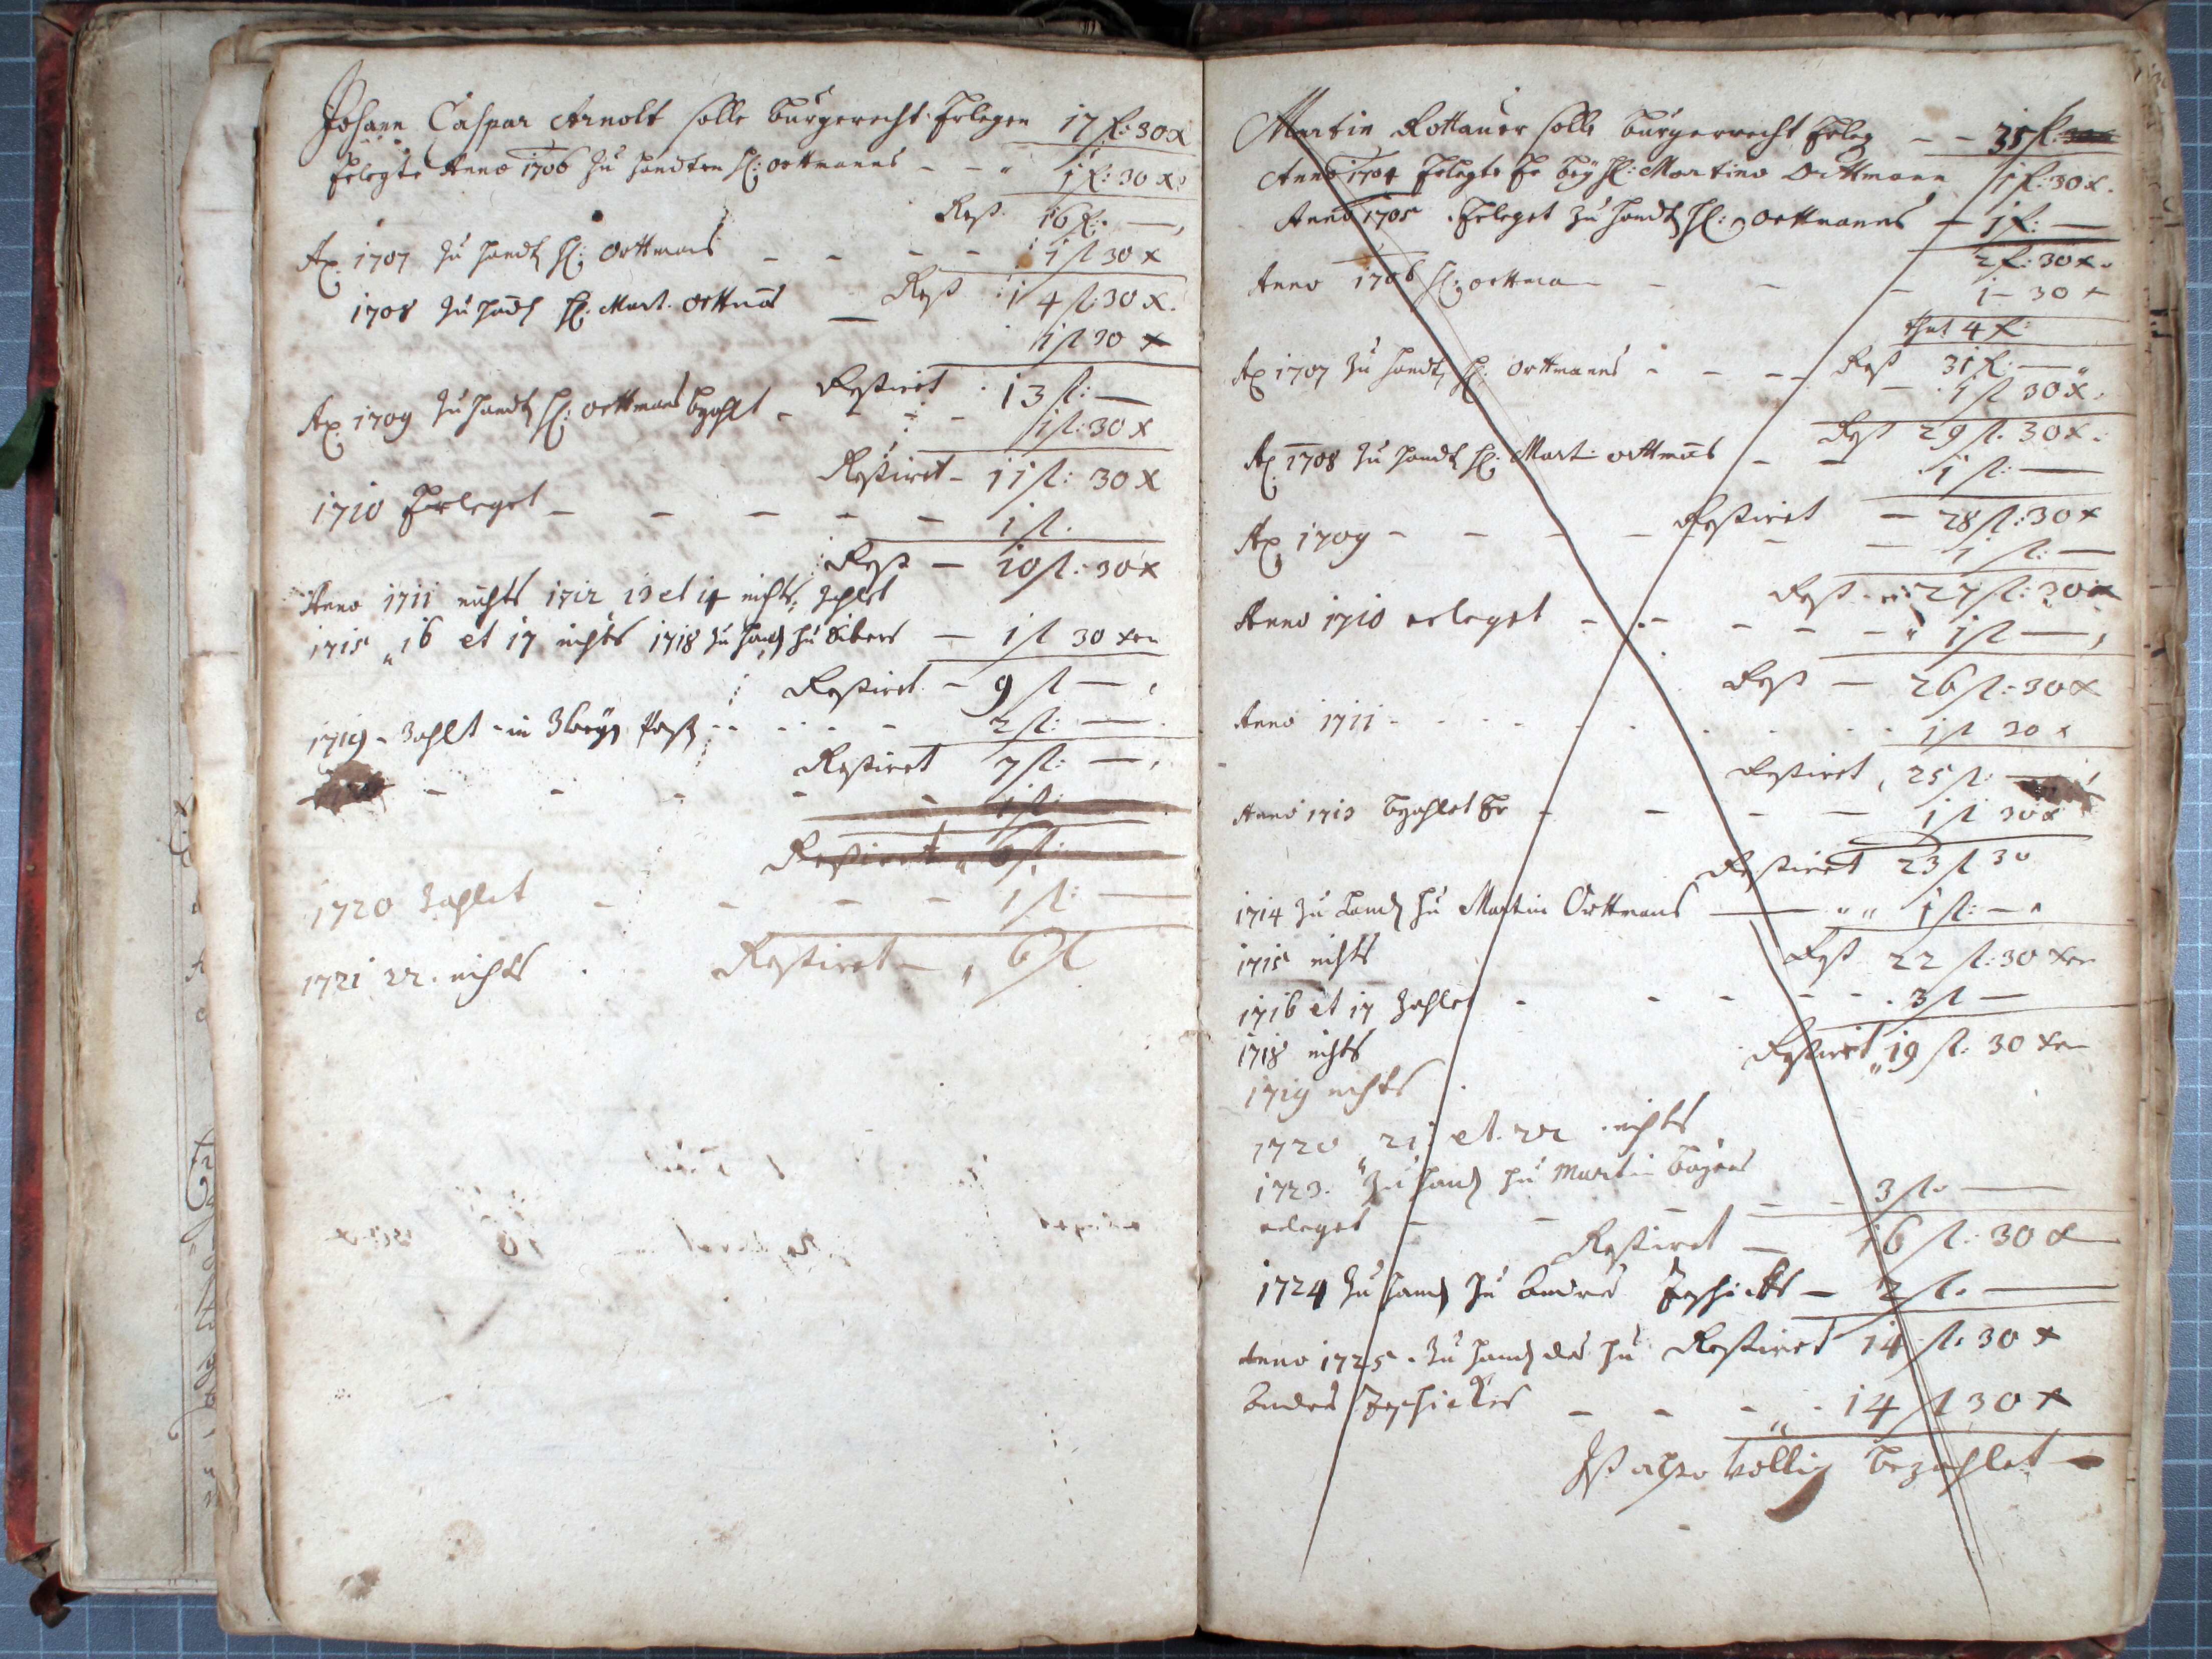 Johann Caspar Arnolt solle burgerecht Erlegen 17 f: 30 x
Erlegte Anno 1706 zu handten H: Orttmanns - - 1 f: 30 x
Rest 16 f: —
Ao 1707 zu handt H: Orttmans - - - - 1 fl 30 x
Rest 14 fl: 30 x
1708 zu handt H: Mart. Orttmās — 1 fl 30 x
Restiret 13 fl: —
Ao 1709 zu handt H: Orttmans bezahlt - - - 1 fl: 30 x
Restiret - 11 fl: 30 x
1710 Erleget - - - - - 1 fl.
Rest — 10 fl: 30 x
Anno 1711 nichts 1712 13 et 14 nichts zahlt
1715 16 et 17 nichts 1718 zu — 1 fl 30 xrn
Restiret - 9 fl —
1719 - Zahlt - in - - - - 2 fl: —
Restiret 7 fl: —
- - - - - 1 fl:
Restiret 6 fl:
1720 Zahlet - - - - 1 fl: —
1721 22. nichts Restiret — 6 fl
Martin Rottauer solle burgerrecht Erleg - - 35 f:
Anno 1704 Erlegte Er bey H: Martino Orttmann 1 f: 30 x.
Anno 1705 Erleget zu handt H: Orttmanns — 1 f: —
2 f: 30 x.
Anno 1706 H: Orttma - - - 1 - 30 x
thut 4 f:
Rest 31 f: —
Ao 1707 zu handt H: Orttmanns - - - - 1 fl 30 x.
Rest 29 fl. 30 x.
Ao 1708 zu handt H: Mart: Orttmās - - 1 fl: —
Restiret — 28 fl: 30 x
Ao 1709 - - - - - 1 fl: —
Rest 27 fl: 30 x
Anno 1710 erleget - - - - - 1 fl —
Rest — 26 fl: 30 x
Anno 1711 - - - - - 1 fl 30 x
Restiret 25 fl: —
Anno 1713 bezahlet Er - - - - 1 fl 30 x
Restiret 23 fl 30
1714 zu hand hn Martin Orttmans — 1 fl: —
1715 nichts Rest 22 fl: 30 xrn
1716 et 17 Zahlet - - - - 3 fl —
1718 nichts Restiret 19 fl: 30 xrn
1719 nichts
1720 21 et. 22 nichts
1723. zu hand hn Martin
erleget - - - - 3 fl. —
Restiret — 16 fl: 30 x
1724 zu hand hn Andres — 2 fl. —
Anno 1725. zu hand des hn Restiret 14 fl. 30 x
Andres - - - 14 fl 30 x
Ist also völlig bezahlet —